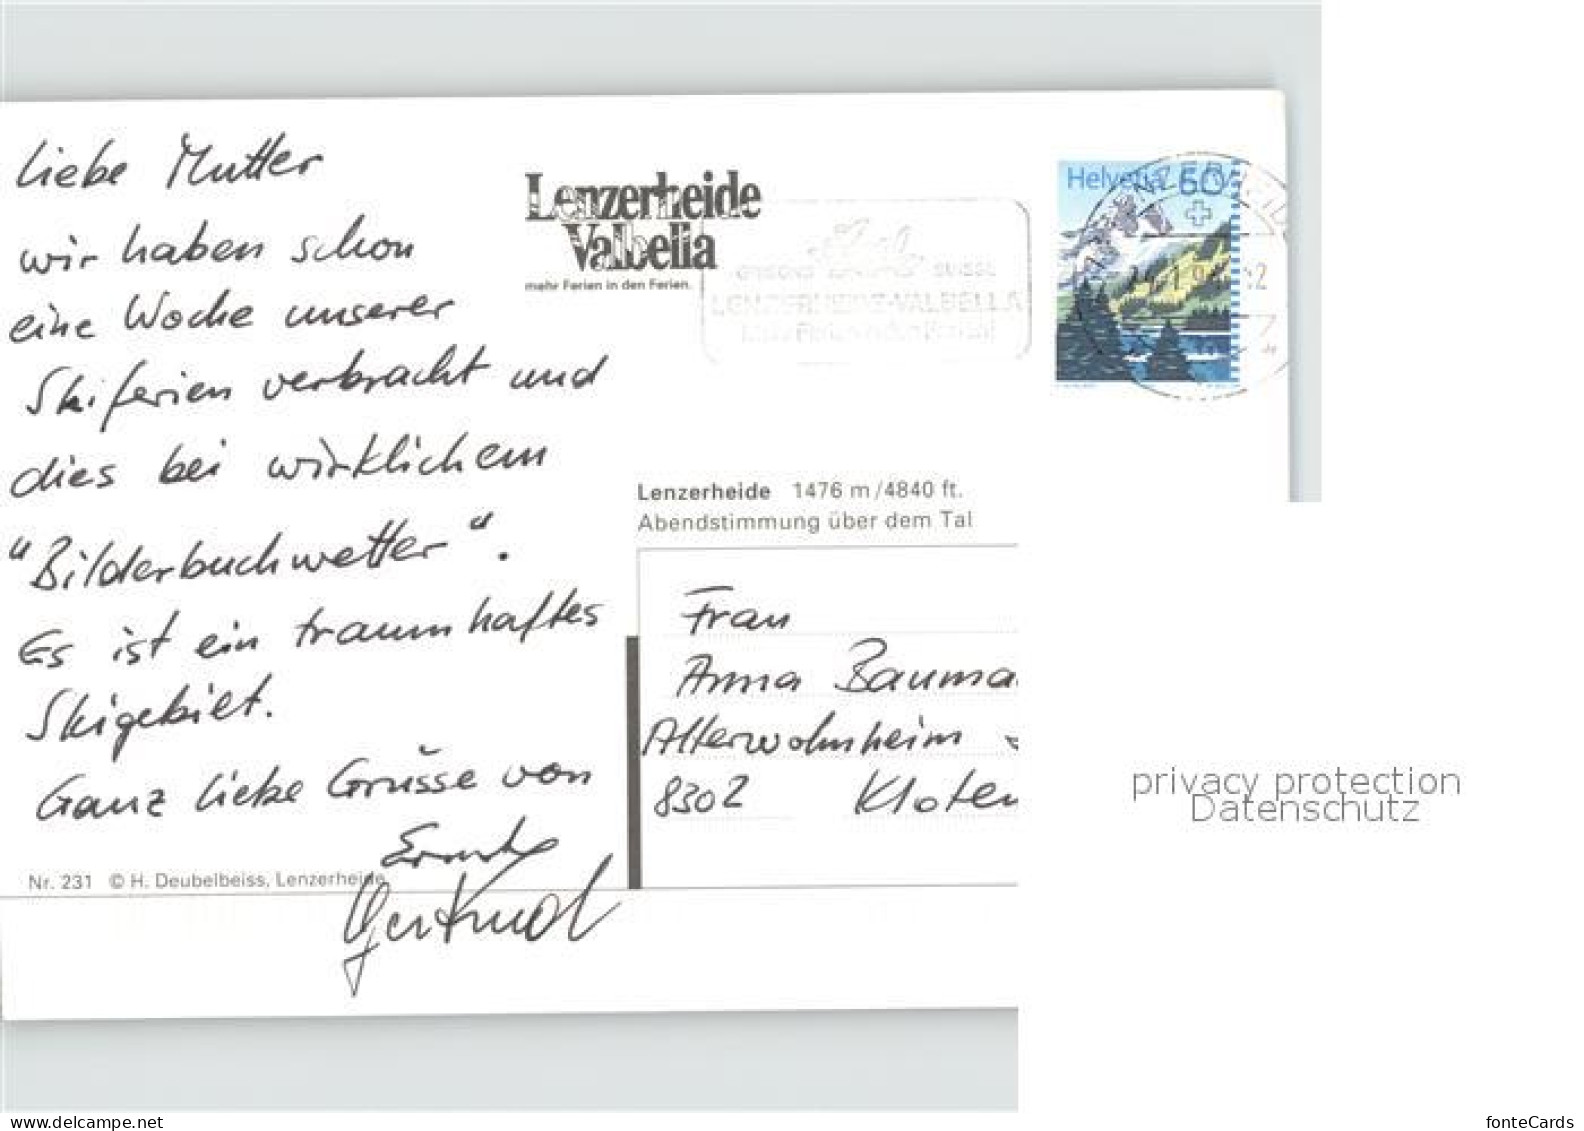 Liebe Mutter
wir haben schon
eine Woche unserer
Skiferien verbracht und
dies bei wirklichem
"Bilderbuchwetter".
Es ist ein traumhaftes
Skigebiet.
Ganz liebe Grüsse von
Ernst
Gertrud
Nr. 231 © H. Deubelbeiss, Lenzerheide
Lenzerheide
Valbella
mehr Ferien in den Ferien.
SUISSE
LENZERHEIDE-VALBELLA
Helvetia 60
Lenzerheide 1476 m/4840 ft.
Abendstimmung über dem Tal
Frau
Anna Bauma
Alterwohnheim
8302 Kloten
privacy protection
Datenschutz
www.delcampe.net
fonteCards